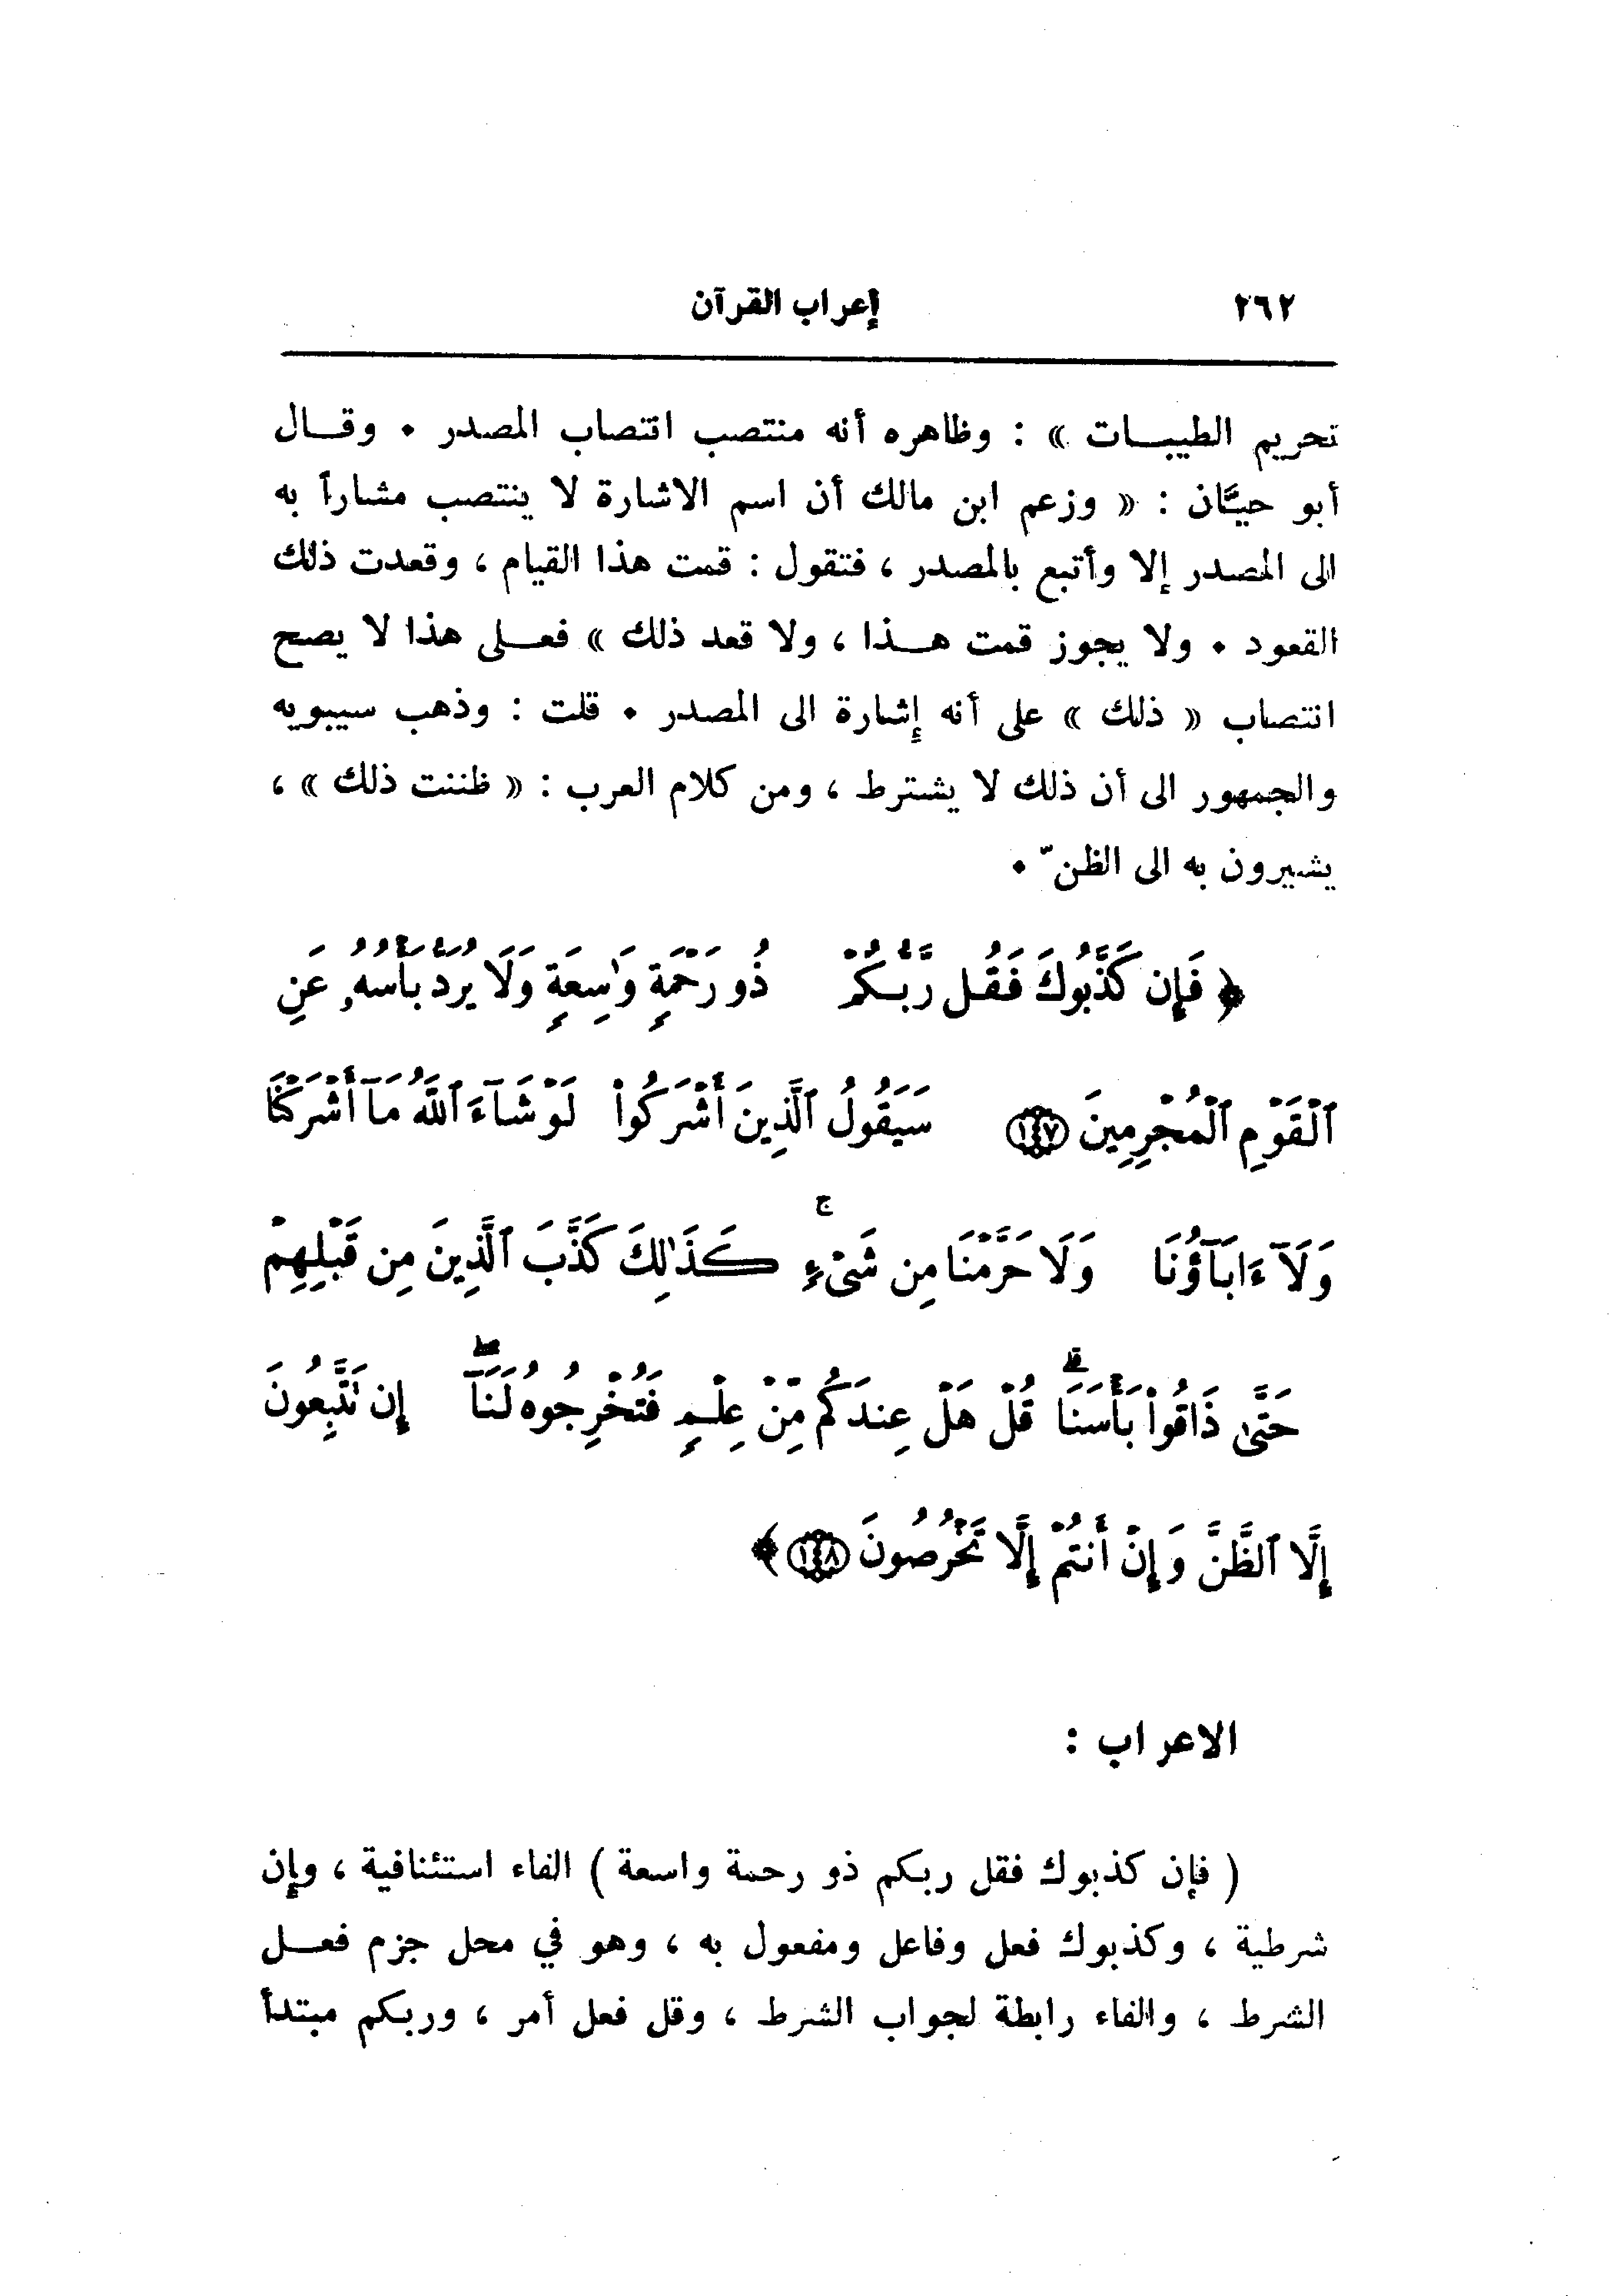 ٢٦٢ إعراب القرآن
تحريم الطيبـــات » : وظاهره أنه منتصب انتصاب المصدر • وقـــال
أبو حيَّان : « وزعم ابن مالك أن اسم الاشارة لا ينتصب مشاراً به
الى المصدر إلا وأتبع بالمصدر ، فتقول : قمت هذا القيام ، وقعدت ذلك
القعود • ولا يجوز قمت هـــذا ، ولا قعد ذلك » فعـــلى هذا لا يصح
انتصاب « ذلك » على أنه إشارة الى المصدر • قلت : وذهب سيبويه
والجمهور الى أن ذلك لا يشترط ، ومن كلام العرب : « ظننت ذلك » ،
يشيرون به الى الظنّ •
﴿ فَإِن كَذَّبُوكَ فَقُل رَّبُّكُمْ ذُو رَحْمَةٍ وَٰسِعَةٍ وَلَا يُرَدُّ بَأْسُهُۥ عَنِ
ٱلْقَوْمِ ٱلْمُجْرِمِينَ ١٤٧ سَيَقُولُ ٱلَّذِينَ أَشْرَكُوا۟ لَوْ شَآءَ ٱللَّهُ مَآ أَشْرَكْنَا
وَلَآ ءَابَآؤُنَا وَلَا حَرَّمْنَا مِن شَىْءٍ ۚ كَذَٰلِكَ كَذَّبَ ٱلَّذِينَ مِن قَبْلِهِمْ
حَتَّىٰ ذَاقُوا۟ بَأْسَنَا ۗ قُلْ هَلْ عِندَكُم مِّنْ عِلْمٍ فَتُخْرِجُوهُ لَنَآ ۖ إِن تَتَّبِعُونَ
إِلَّا ٱلظَّنَّ وَإِنْ أَنتُمْ إِلَّا تَخْرُصُونَ ١٤٨ ﴾
الاعراب :
( فإن كذبوك فقل ربكم ذو رحمة واسعة ) الفاء استئنافية ، وإن
شرطية ، وكذبوك فعل وفاعل ومفعول به ، وهو في محل جزم فعـــل
الشرط ، والفاء رابطة لجواب الشرط ، وقل فعل أمر ، وربكم مبتدأ